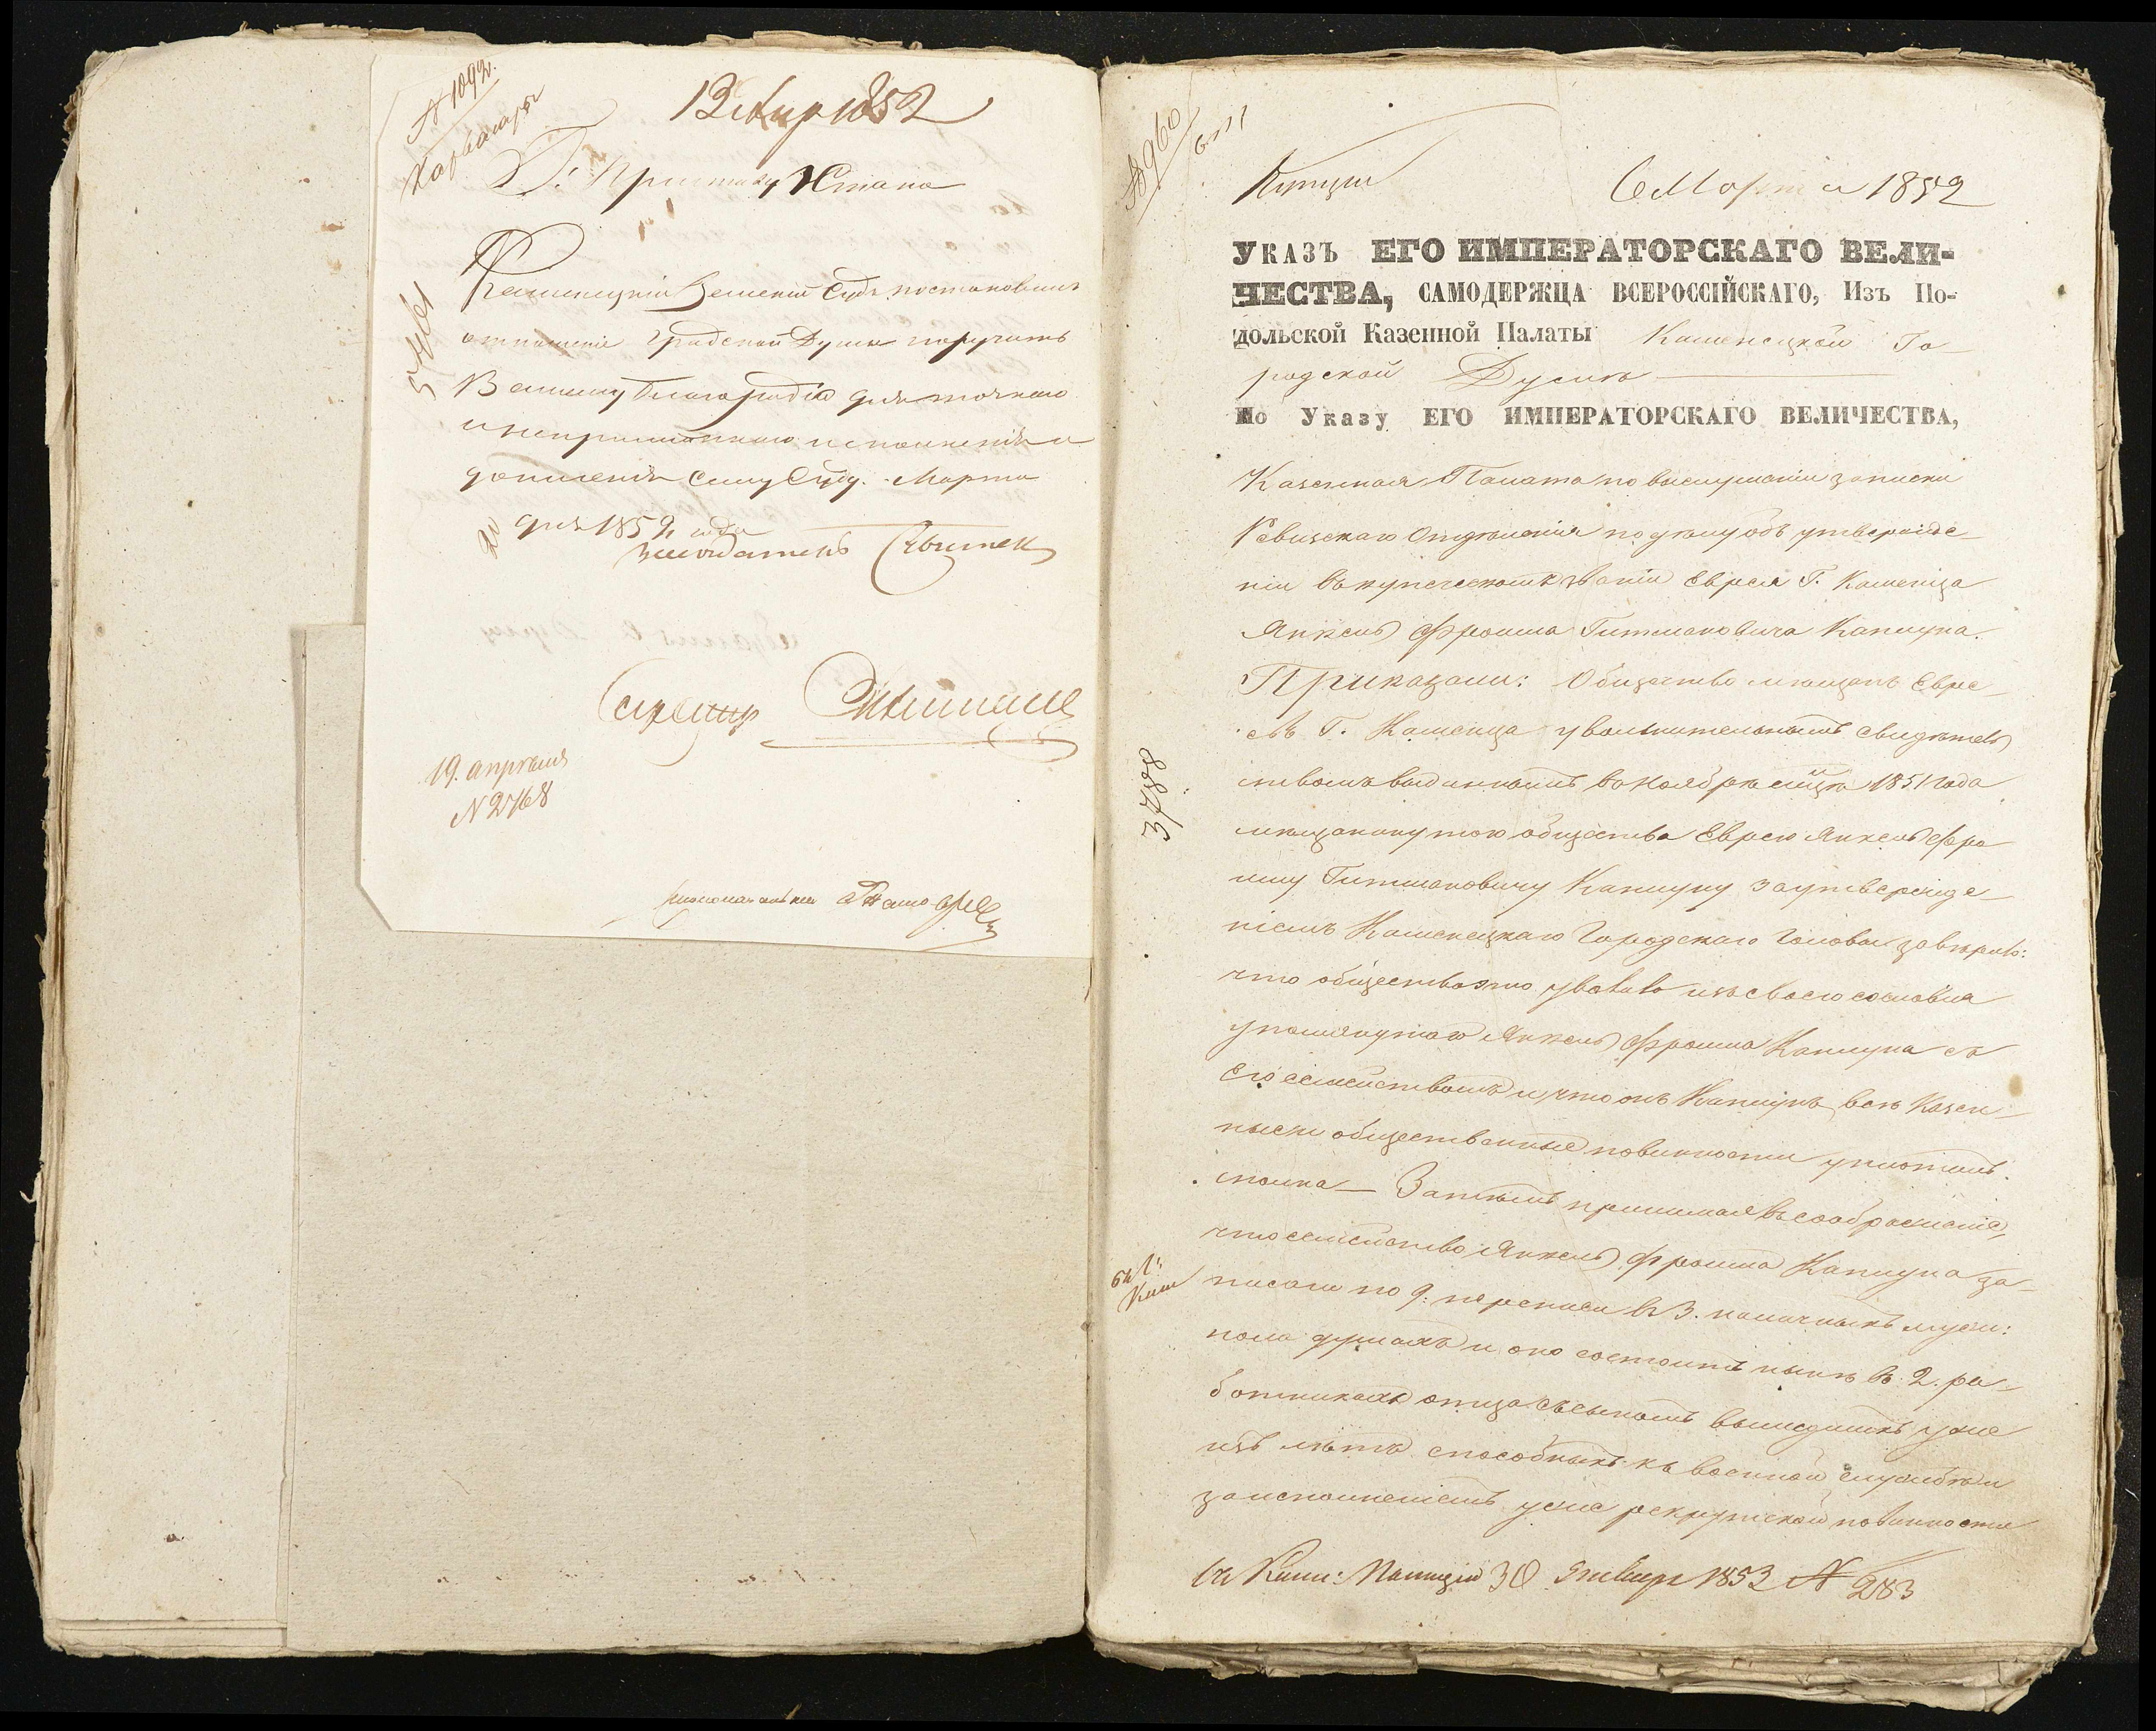 № 1092.
12 Апр 1852
Г. Приставу Стана
Каменецкій Земскій Судъ постановилъ
отношеніе Градской Думы поручить
Вашему благородію для точнаго
и исполненія и
донесенія сему Суду. Марта
20 дня 1852 года
Засѣдатель
Секретарь
19. апрѣля
№ 2768
№ 960
6 Марта 1852
Указъ ЕГО ИМПЕРАТОРСКАГО ВЕЛИ-
ЧЕСТВА, САМОДЕРЖЦА ВСЕРОССІЙСКАГО, Изъ По-
дольской Казенной Палаты Каменецкой Го-
родской Думѣ
По Указу ЕГО ИМПЕРАТОРСКАГО ВЕЛИЧЕСТВА,
Казенная Палата по выслушаніи записки
Ревизскаго Отдѣленія по дѣлу объ утвержде-
ніи въ купеческомъ званіи Еврея Г. Каменца
Янкель Фроима Гитмановича Капцуна.
Приказали: Общество мѣщанъ Евре-
евъ Г. Каменца увольнительнымъ свидѣтель
ствомъ выданнымъ въ Ноябрѣ м-цѣ 1851 года
мѣщанину того общества Еврею Янкель Фро
иму Гитмановичу Капцуну за утвержде-
ніемъ Каменецкаго Городскаго Головы завѣрило:
что общество это уволило изъ своего сословія
упомянутаго Янкель Фроима Капцуна съ
его семействомъ и что онъ Капцунъ всѣ казен-
ные и общественные повинности уплотилъ
сполна — Затѣмъ принимая въ соображеніе,
что семейство Янкель Фроима Капцуна за-
писано по 9. переписи въ 3. наличныхъ муж:
пола душахъ и оно состоитъ нынѣ въ 2. ра-
ботникахъ отца съ сыномъ вышедшихъ уже
изъ лѣтъ способныхъ къ военной службѣ и
за исполненіемъ уже рекрутской повинности
3788
въ Кам: Полицію 30 Январ 1853 № 283